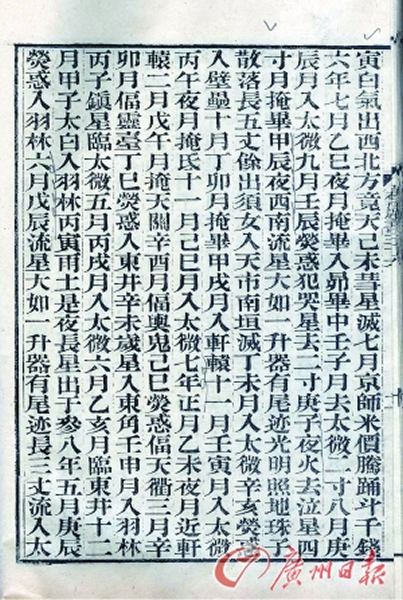 寅白氣出西北方竟天己未彗星滅七月京師米價騰踊斗千錢
六年七月乙巳夜月掩畢入昴畢中壬子月去太微一寸八月庚
辰月入太微九月壬辰熒惑犯哭星去二寸庚子夜火去泣星四
寸月掩畢甲辰夜西南流星大如一升器有尾迹光明照地珠子
散落長五丈餘出須女入天市南垣滅丁未月入太微辛亥熒惑
入壁壘十月丁卯月掩畢甲戌月入軒轅十一月壬寅月入太微
丙午夜月掩氐十一月己巳月入太微七年正月乙未夜月近軒
轅二月戊午月掩天關辛酉月偪輿鬼己巳熒惑偪天衢三月辛
卯月偪靈臺丁巳熒惑入東井辛未歲星入東角壬申月入羽林
丙子鎮星臨太微五月丙戌月入太微六月乙亥月臨東井十二
月甲子太白入羽林丙寅雨土是夜長星出于參八年五月庚辰
熒惑入羽林六月戊辰流星大如一升器有尾迹長三丈流入太
廣州日報